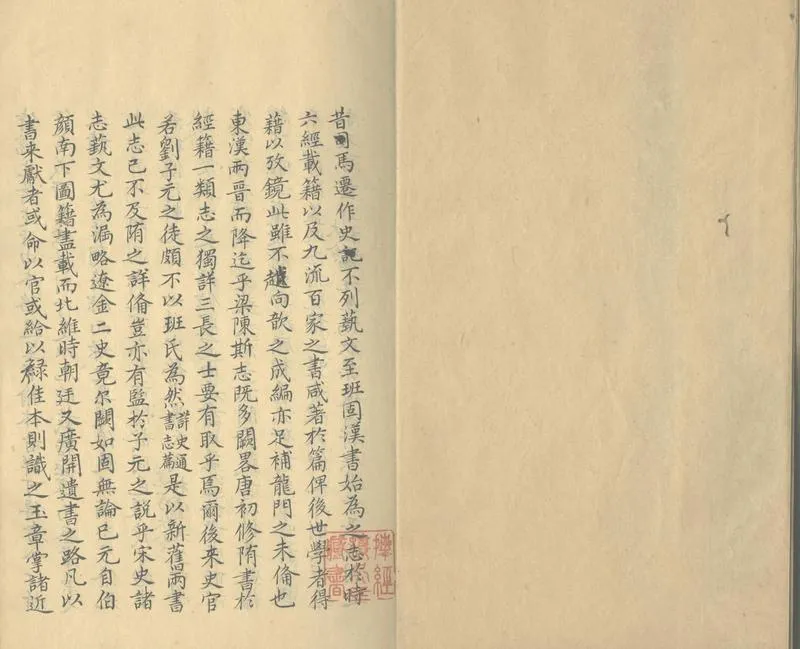 昔司馬遷作史記不列藝文至班固漢書始為之志於時
六經載籍以及九流百家之書咸著於篇俾後世學者得
藉以攷鏡此雖不向歆之成編亦足補龍門之未俻也
東漢兩晉而降迄乎梁陳斯志既多闕畧唐初修隋書於
經籍一類志之獨詳三長之士要有取乎焉爾後来史官
若劉子元之徒頗不以班氏為然詳史通書志篇是以新舊兩書
此志已不及隋之詳俻豈亦有監於子元之說乎宋史諸
志藝文尤為漏略遼金二史竟尔闕如固無論已元自伯
顏南下圖籍盡載而北維時朝廷又廣開遺書之路凡以
書来獻者或命以官或給以祿佳本則識之玉章掌諸近
藏書